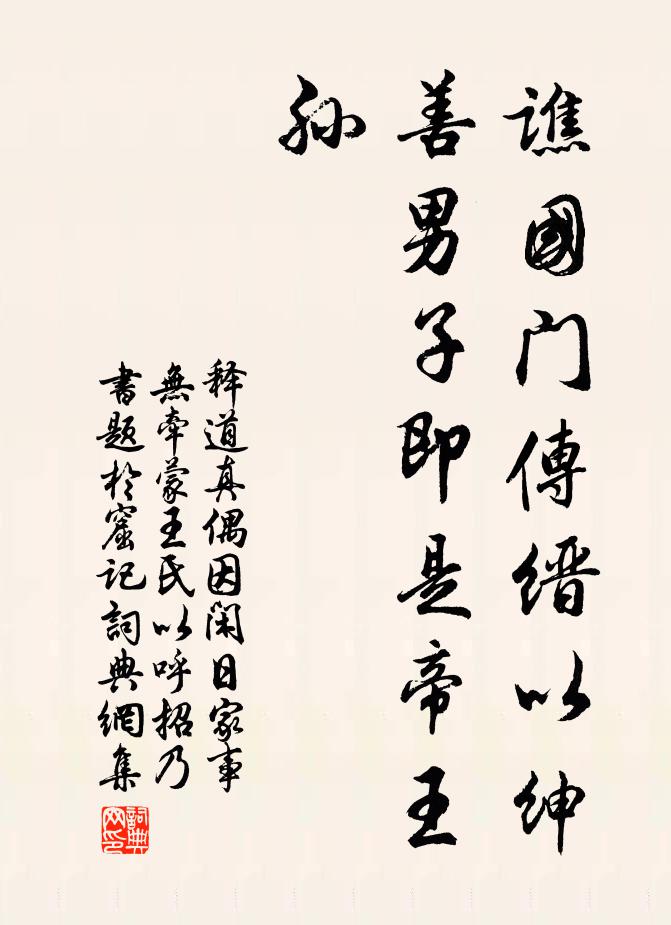 譙國門傳縉以紳
善男子即是帝王
孫
释道真偶因閑日家事
無牽蒙王氏以呼招乃
書題於窟记詞典網集
詞典
网印